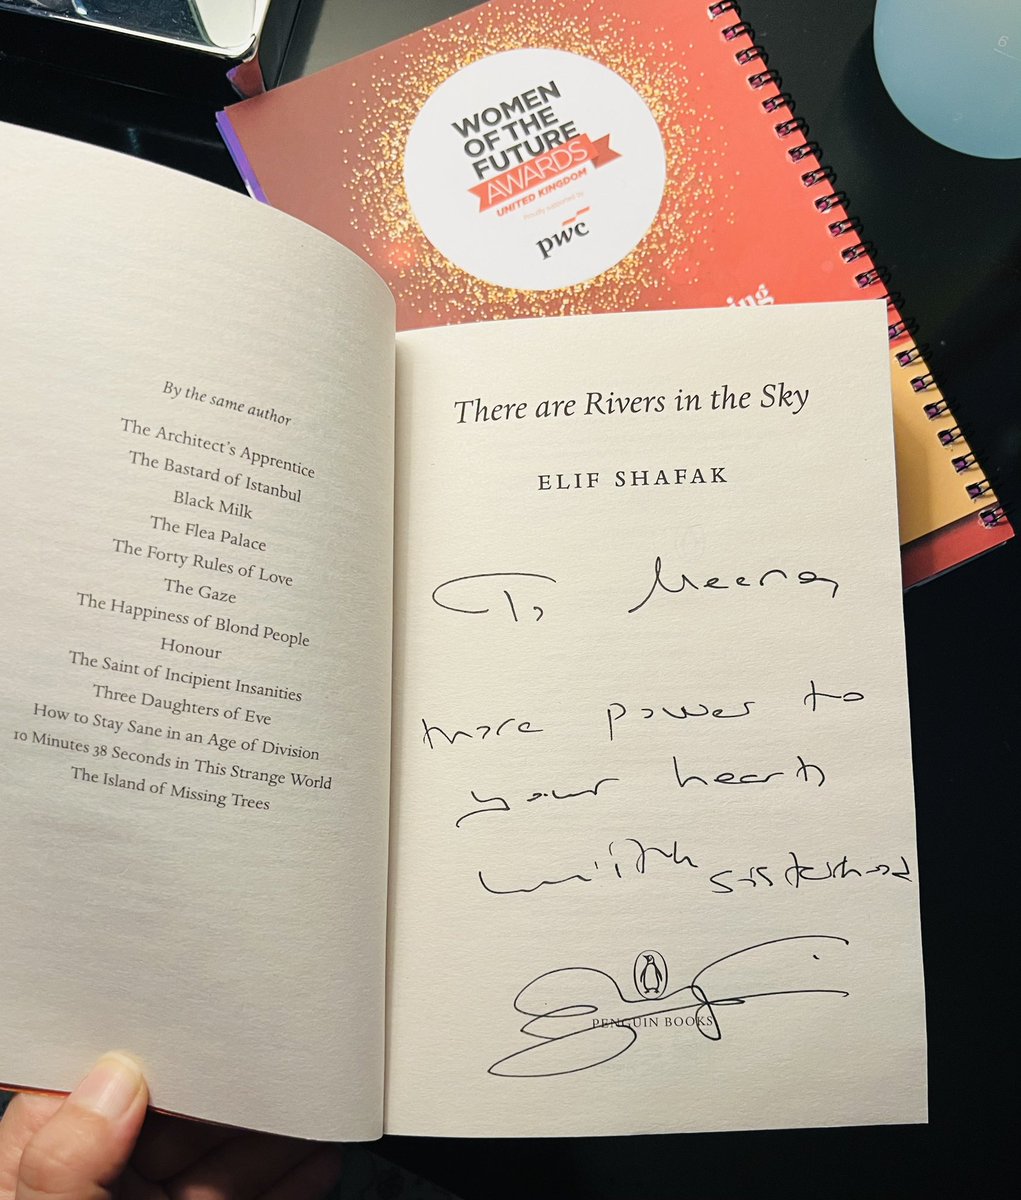 WOMEN
OF THE
FUTURE
AWARDS
UNITED KINGDOM
Proudly supported by
pwc
By the same author
The Architect's Apprentice
The Bastard of Istanbul
Black Milk
The Flea Palace
The Forty Rules of Love
The Gaze
The Happiness of Blond People
Honour
The Saint of Incipient Insanities
Three Daughters of Eve
How to Stay Sane in an Age of Division
10 Minutes 38 Seconds in This Strange World
The Island of Missing Trees
There are Rivers in the Sky
ELIF SHAFAK
To Meena,
more power to
your heart,
with sisterhood
PENGUIN BOOKS